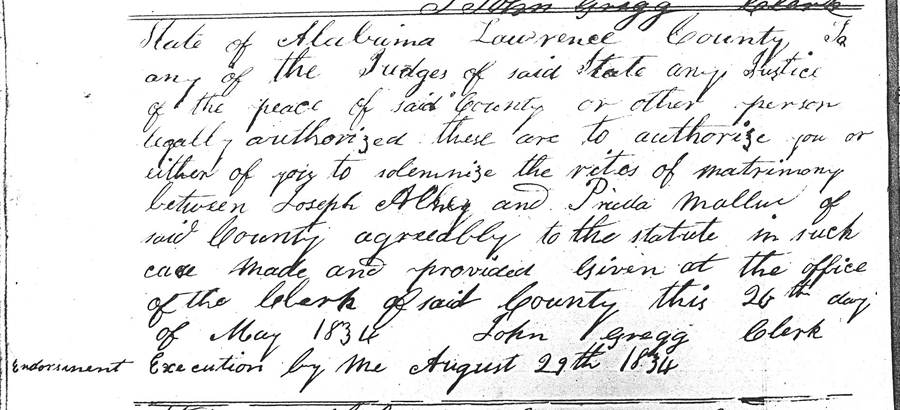 John Gregg Clerk
State of Alabama Lawrence County To
any of the Judges of said State any Justice
of the peace of said County or other person
legally authorized these are to authorize you or
either of you to solemnize the rites of matrimony
between Joseph and of
said County agreeably to the statute in such
case made and provided Given at the office
of the Clerk of said County this 26th day
of May 1834 John Gregg Clerk
Endorsement Execution by me August 29th 1834